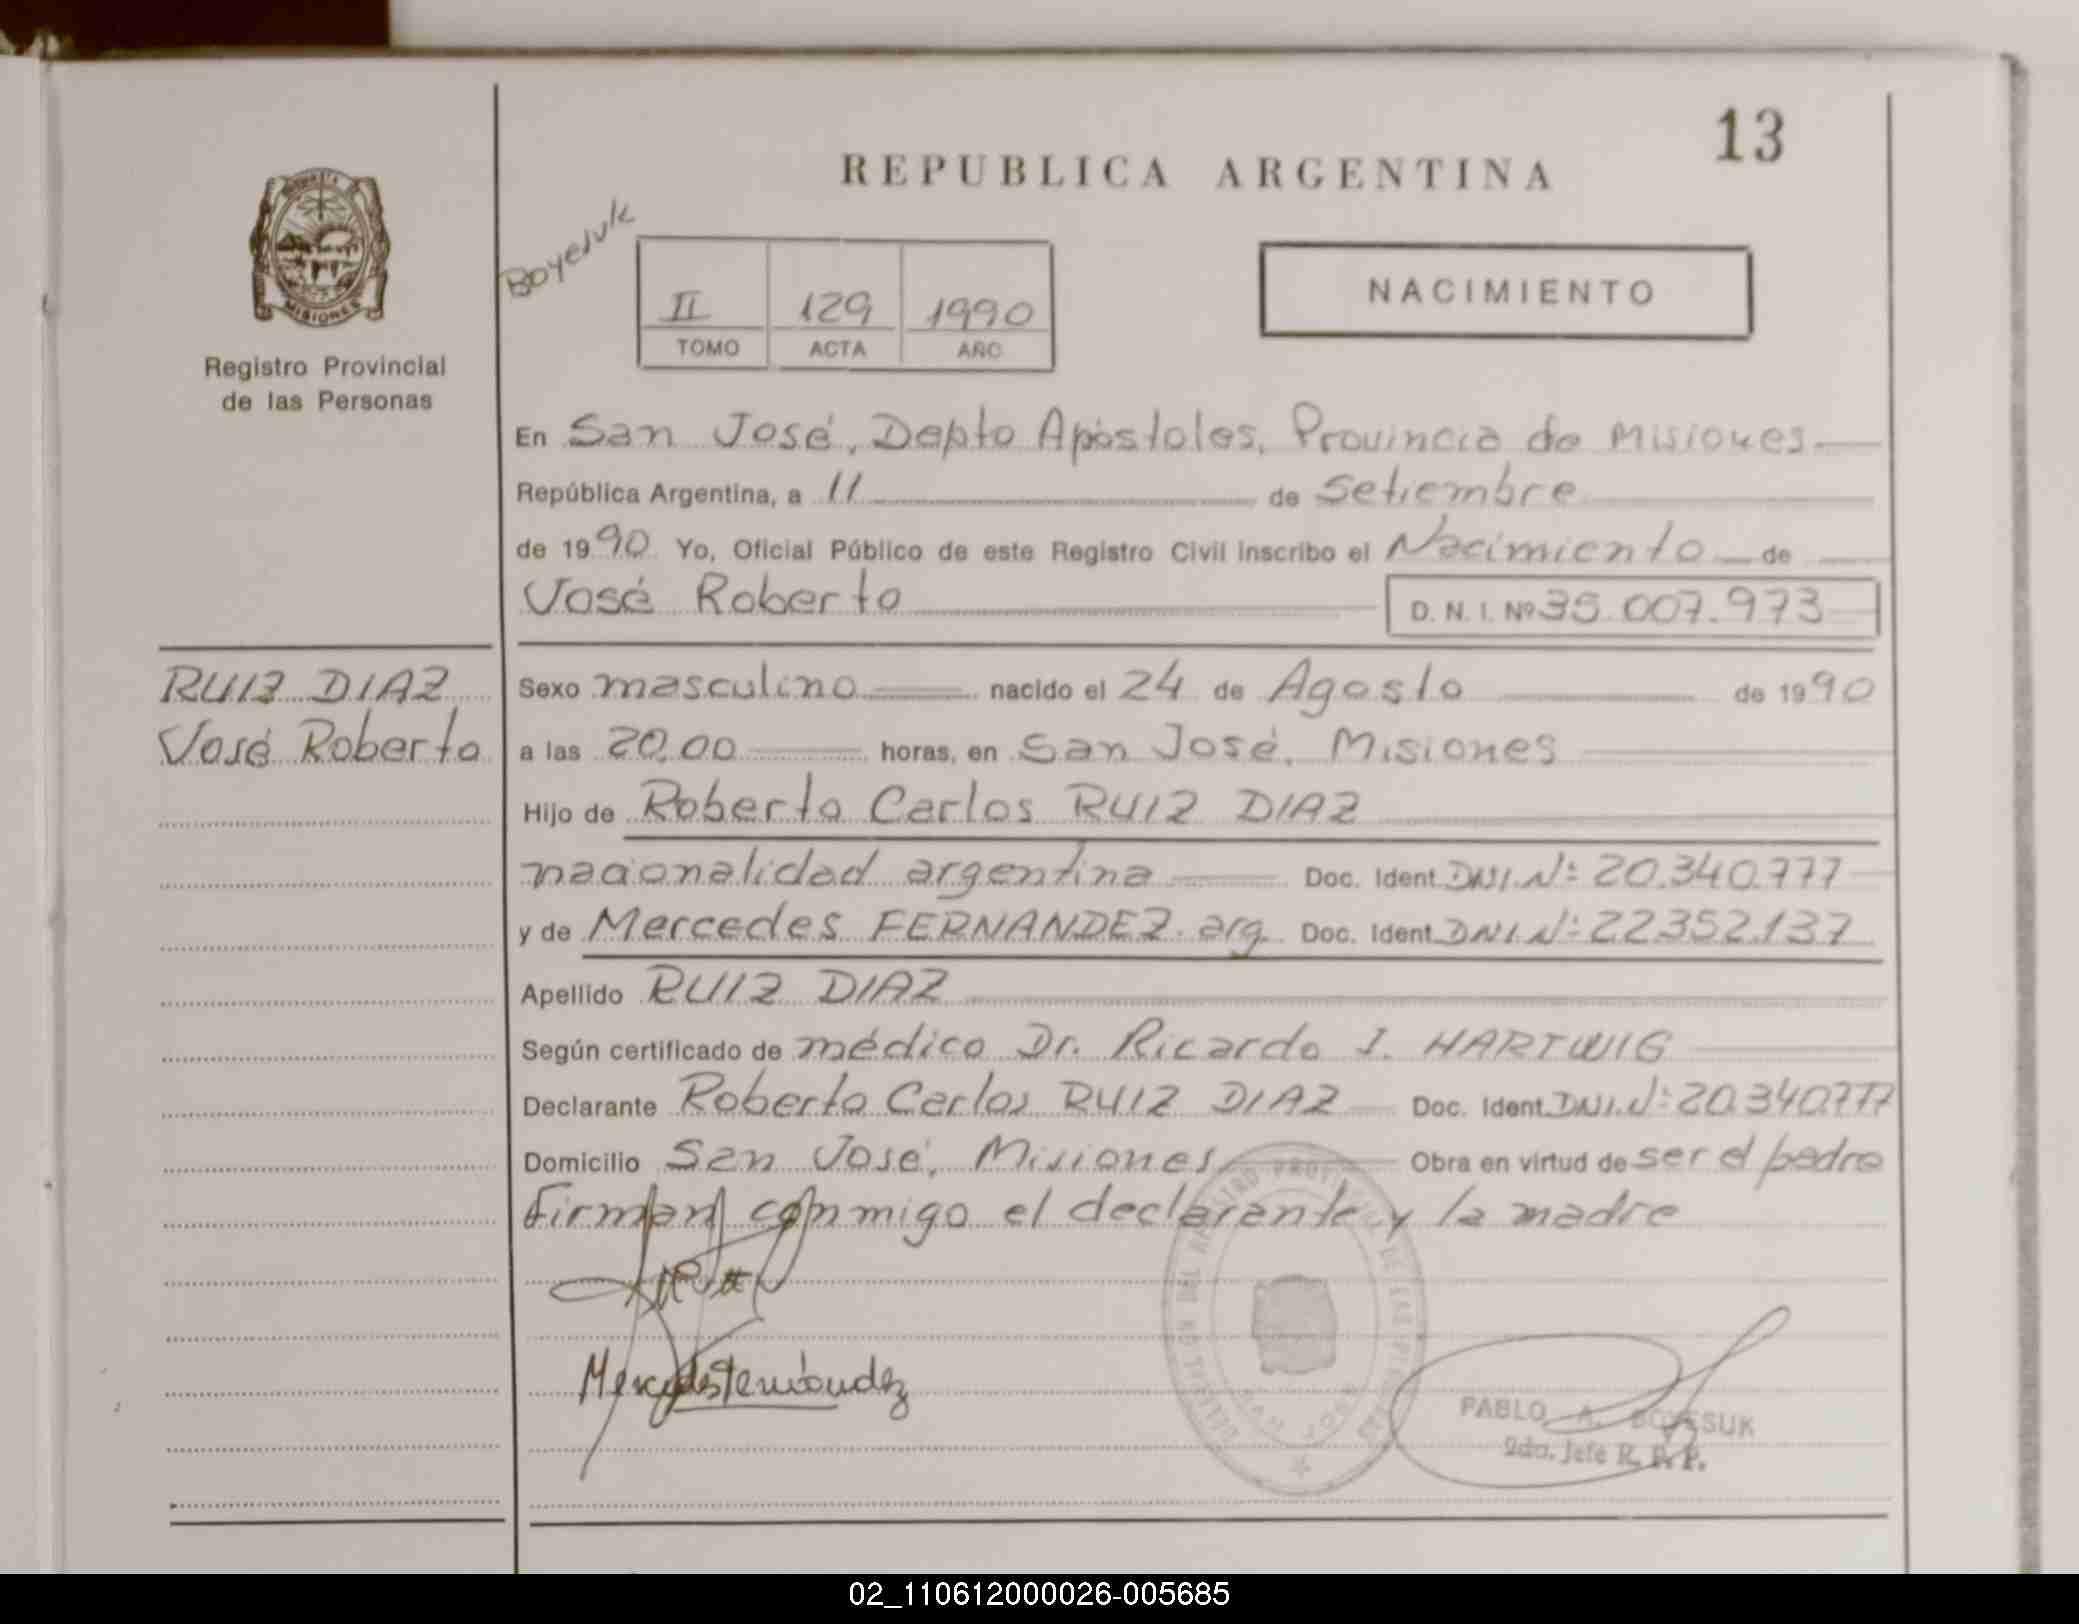 13
REPUBLICA ARGENTINA
MISIONES
Registro Provincial
de las Personas
Boyesuk
II 129 1990
TOMO ACTA AÑO
NACIMIENTO
En San José, Depto Apóstoles, Provincia de Misiones
República Argentina, a 11 de Setiembre
de 1990 Yo, Oficial Público de este Registro Civil inscribo el Nacimiento de
José Roberto D. N. I. Nº 35.007.973
RUIZ DIAZ
José Roberto
Sexo masculino nacido el 24 de Agosto de 1990
a las 20,00 horas, en San José, Misiones
Hijo de Roberto Carlos RUIZ DIAZ
nacionalidad argentina Doc. Ident. DNI.Nº 20.340.777
y de Mercedes FERNANDEZ. arg Doc. Ident. DNI.Nº 22352.137
Apellido RUIZ DIAZ
Según certificado de médico Dr. Ricardo I. HARTWIG
Declarante Roberto Carlos RUIZ DIAZ Doc. Ident. DNI.Nº 20.340.777
Domicilio San José, Misiones Obra en virtud de ser el padre
Firman conmigo el declarante y la madre
Mercedes Fernández
SAN JOSE
PABLO A. BOYESUK
2do. Jefe R. P. P.
02_110612000026-005685